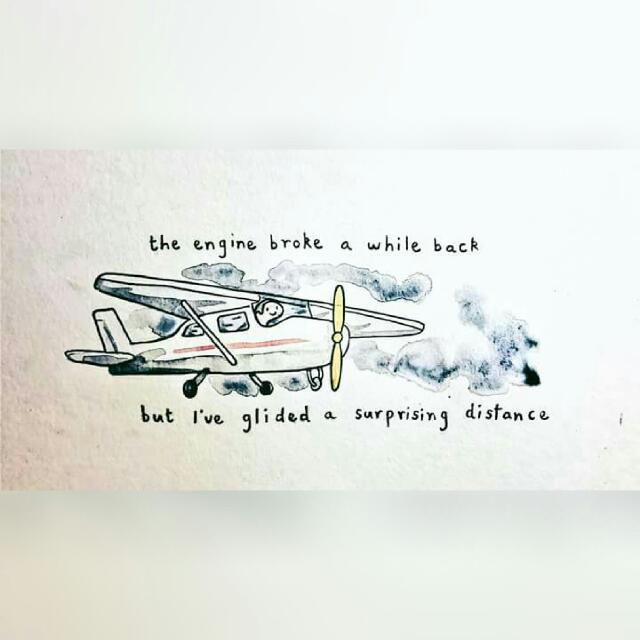 the engine broke a while back
but I've glided a surprising distance